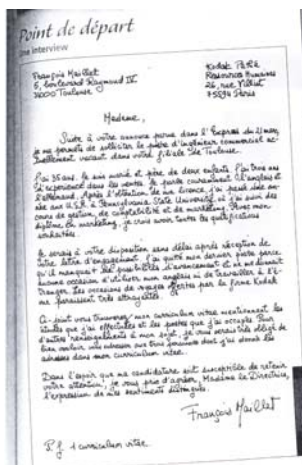 Point de départ
Une interview
François Maillet
5, boulevard Raymond IV
31000 Toulouse
Kodak Pathé
Ressources Humaines
26, rue Villiot
75594 Paris
Madame,
Suite à votre annonce parue dans l'Express du 21 mars,
je me permets de solliciter le poste d'ingénieur commercial ac-
tuellement vacant dans votre filiale de Toulouse.
J'ai 35 ans. Je suis marié et père de deux enfants. J'ai trois ans
d'expérience dans les ventes. Je parle couramment l'anglais et
l'allemand. Après l'obtention de ma licence, j'ai passé une an-
née aux U.S.A. à Pennsylvania State University, où j'ai suivi des
cours de gestion, de comptabilité et de marketing. Avec mon
diplôme en marketing, je crois avoir toutes les qualifications
souhaitées.
Je serais à votre disposition sans délai après réception de
votre lettre d'engagement. J'ai quitté mon dernier poste parce
qu'il manquait de possibilités d'avancement et ne me donnait
aucune occasion d'utiliser mon anglais ni de travailler à l'é-
tranger. Les occasions de voyages offertes par la firme Kodak
me paraissent très attrayantes.
Ci-joint vous trouverez mon curriculum vitae mentionnant les
études que j'ai effectuées et les postes que j'ai occupés. Pour
d'autres renseignements à mon sujet, je vous serais très obligé de
bien vouloir vous adresser aux trois personnes dont j'ai donné les
adresses dans mon curriculum vitae.
Dans l'espoir que ma candidature soit susceptible de retenir
votre attention, je vous prie d'agréer, Madame la Directrice,
l'expression de mes sentiments distingués.
François Maillet
P.J. 1 curriculum vitae